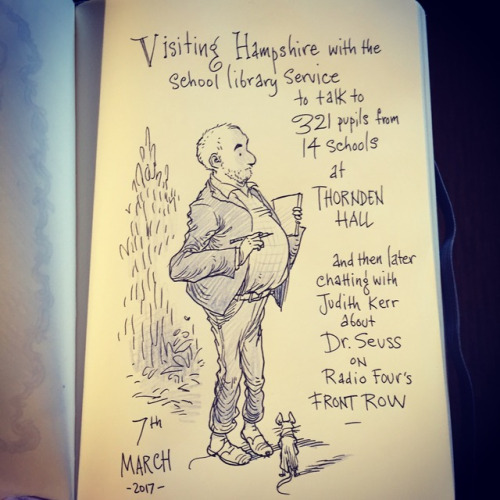 Visiting Hampshire with the
School library Service
to talk to
321 pupils from
14 schools
at
THORNDEN
HALL
and then later
chatting with
Judith Kerr
about
Dr. Seuss
ON
Radio Four's
FRONT ROW
—
7th
MARCH
-2017-